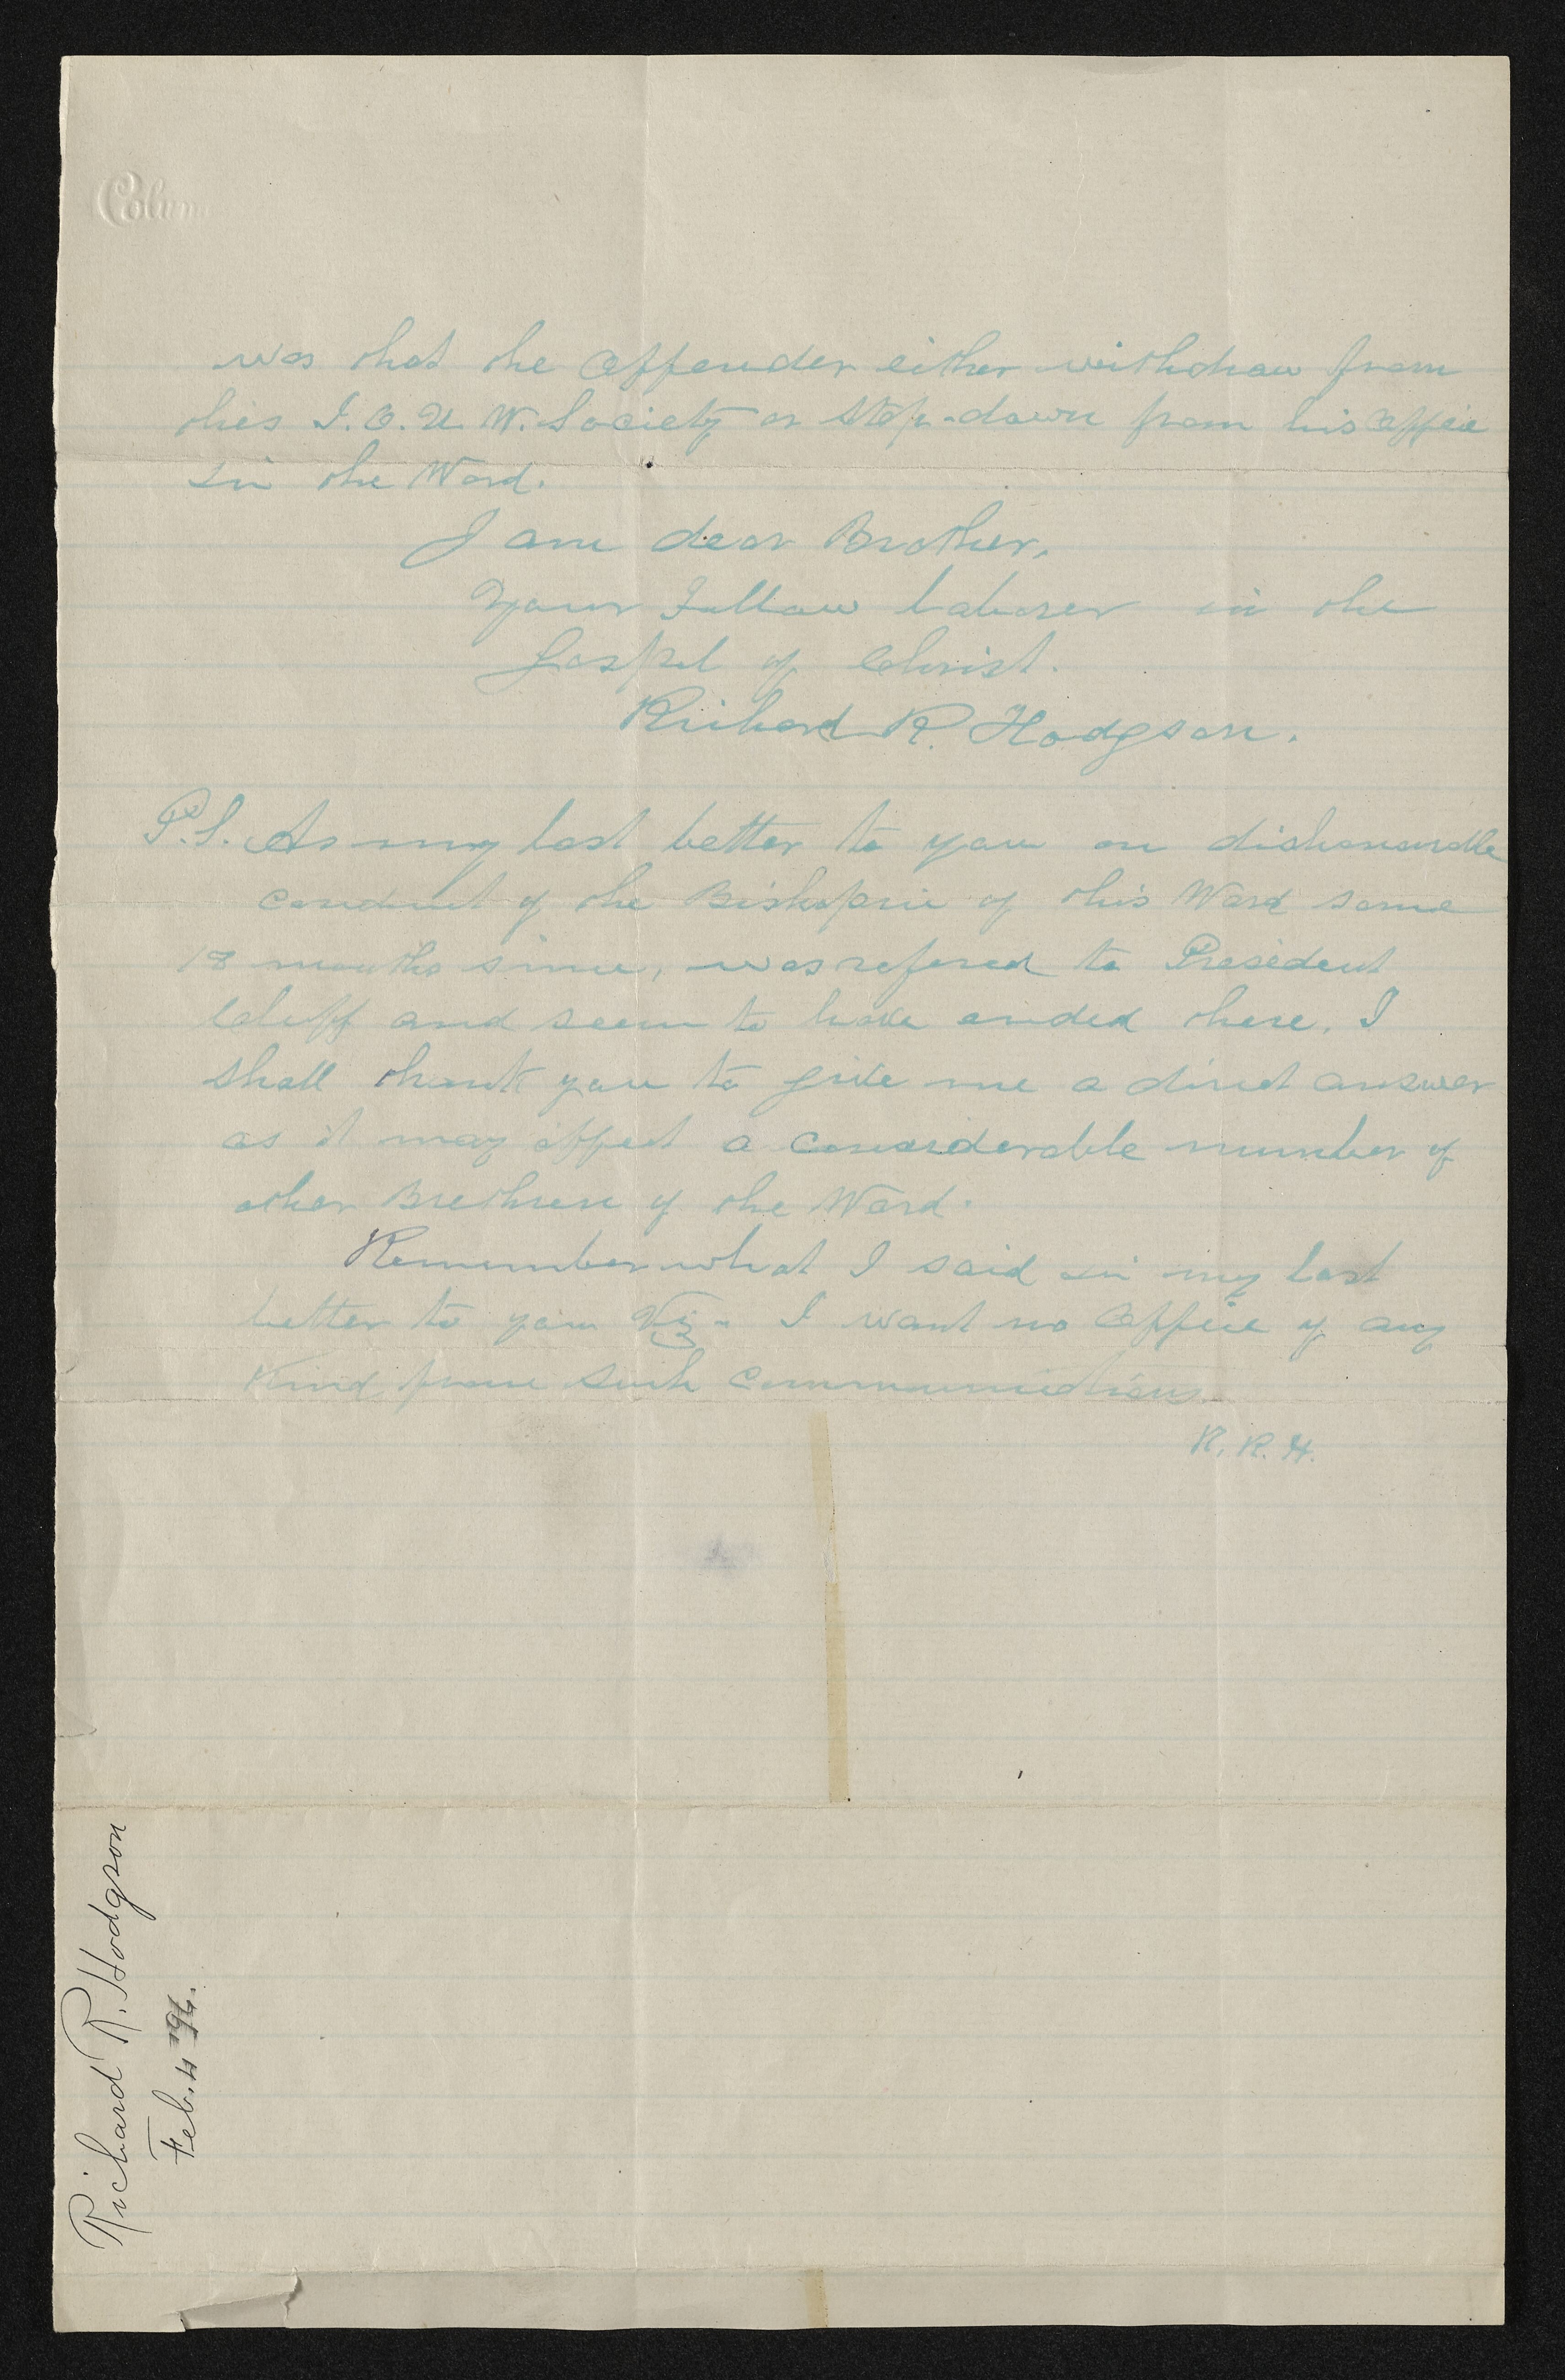 Colum
was that the offender either withdraw from
this I. O. U. W. Society or step-down from his office
in the Ward.
I am dear Brother,
Your Fellow laborer in the
Gospel of Christ.
Richard R. Hodgson.
P.S. As my last letter to you on dishonorable
conduct of the Bishopric of this Ward some
18 months since, was refered to President
Cluff and seem to have ended there. I
shall thank you to give me a direct answer
as it may affect a considerable number of
other Brethren of the Ward.
Remember what I said in my last
letter to you Viz- I want no Office of any
kind from such communications.
R. R. H.
Richard R. Hodgson
Feb. 4